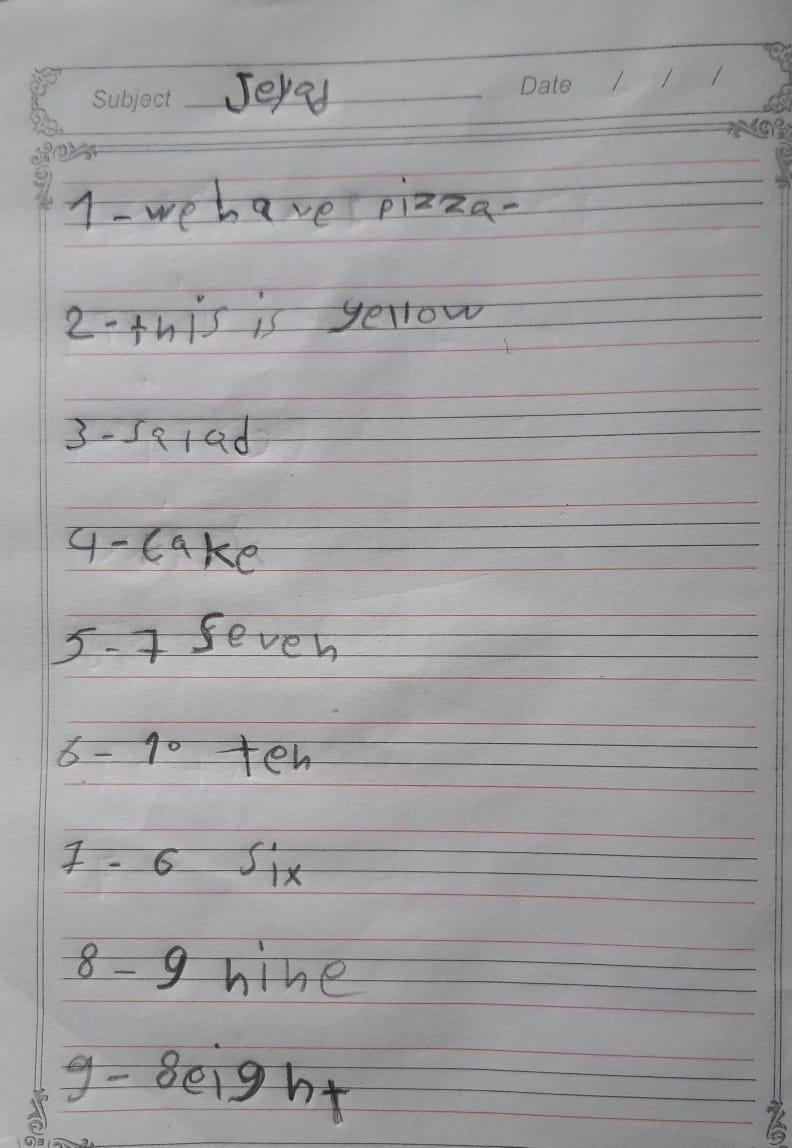 Subject Jeyad Date / / /
1-we have pizza-
2-this is yellow
3-salad
4-cake
5-7 seven
6-10 ten
7-6 six
8-9 nine
9-8eight